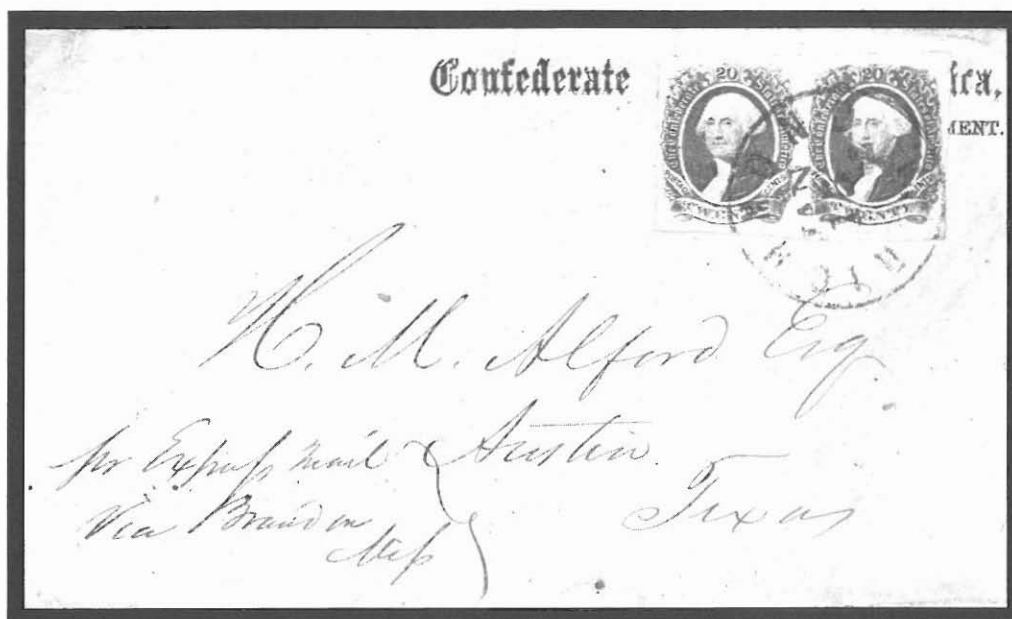 Confederate ica,
MENT.
20 20
TWENTY TWENTY
RICH
H. M. Alford Esq
Austin
Texas
pr Express Mail
Via Brandon
Miss